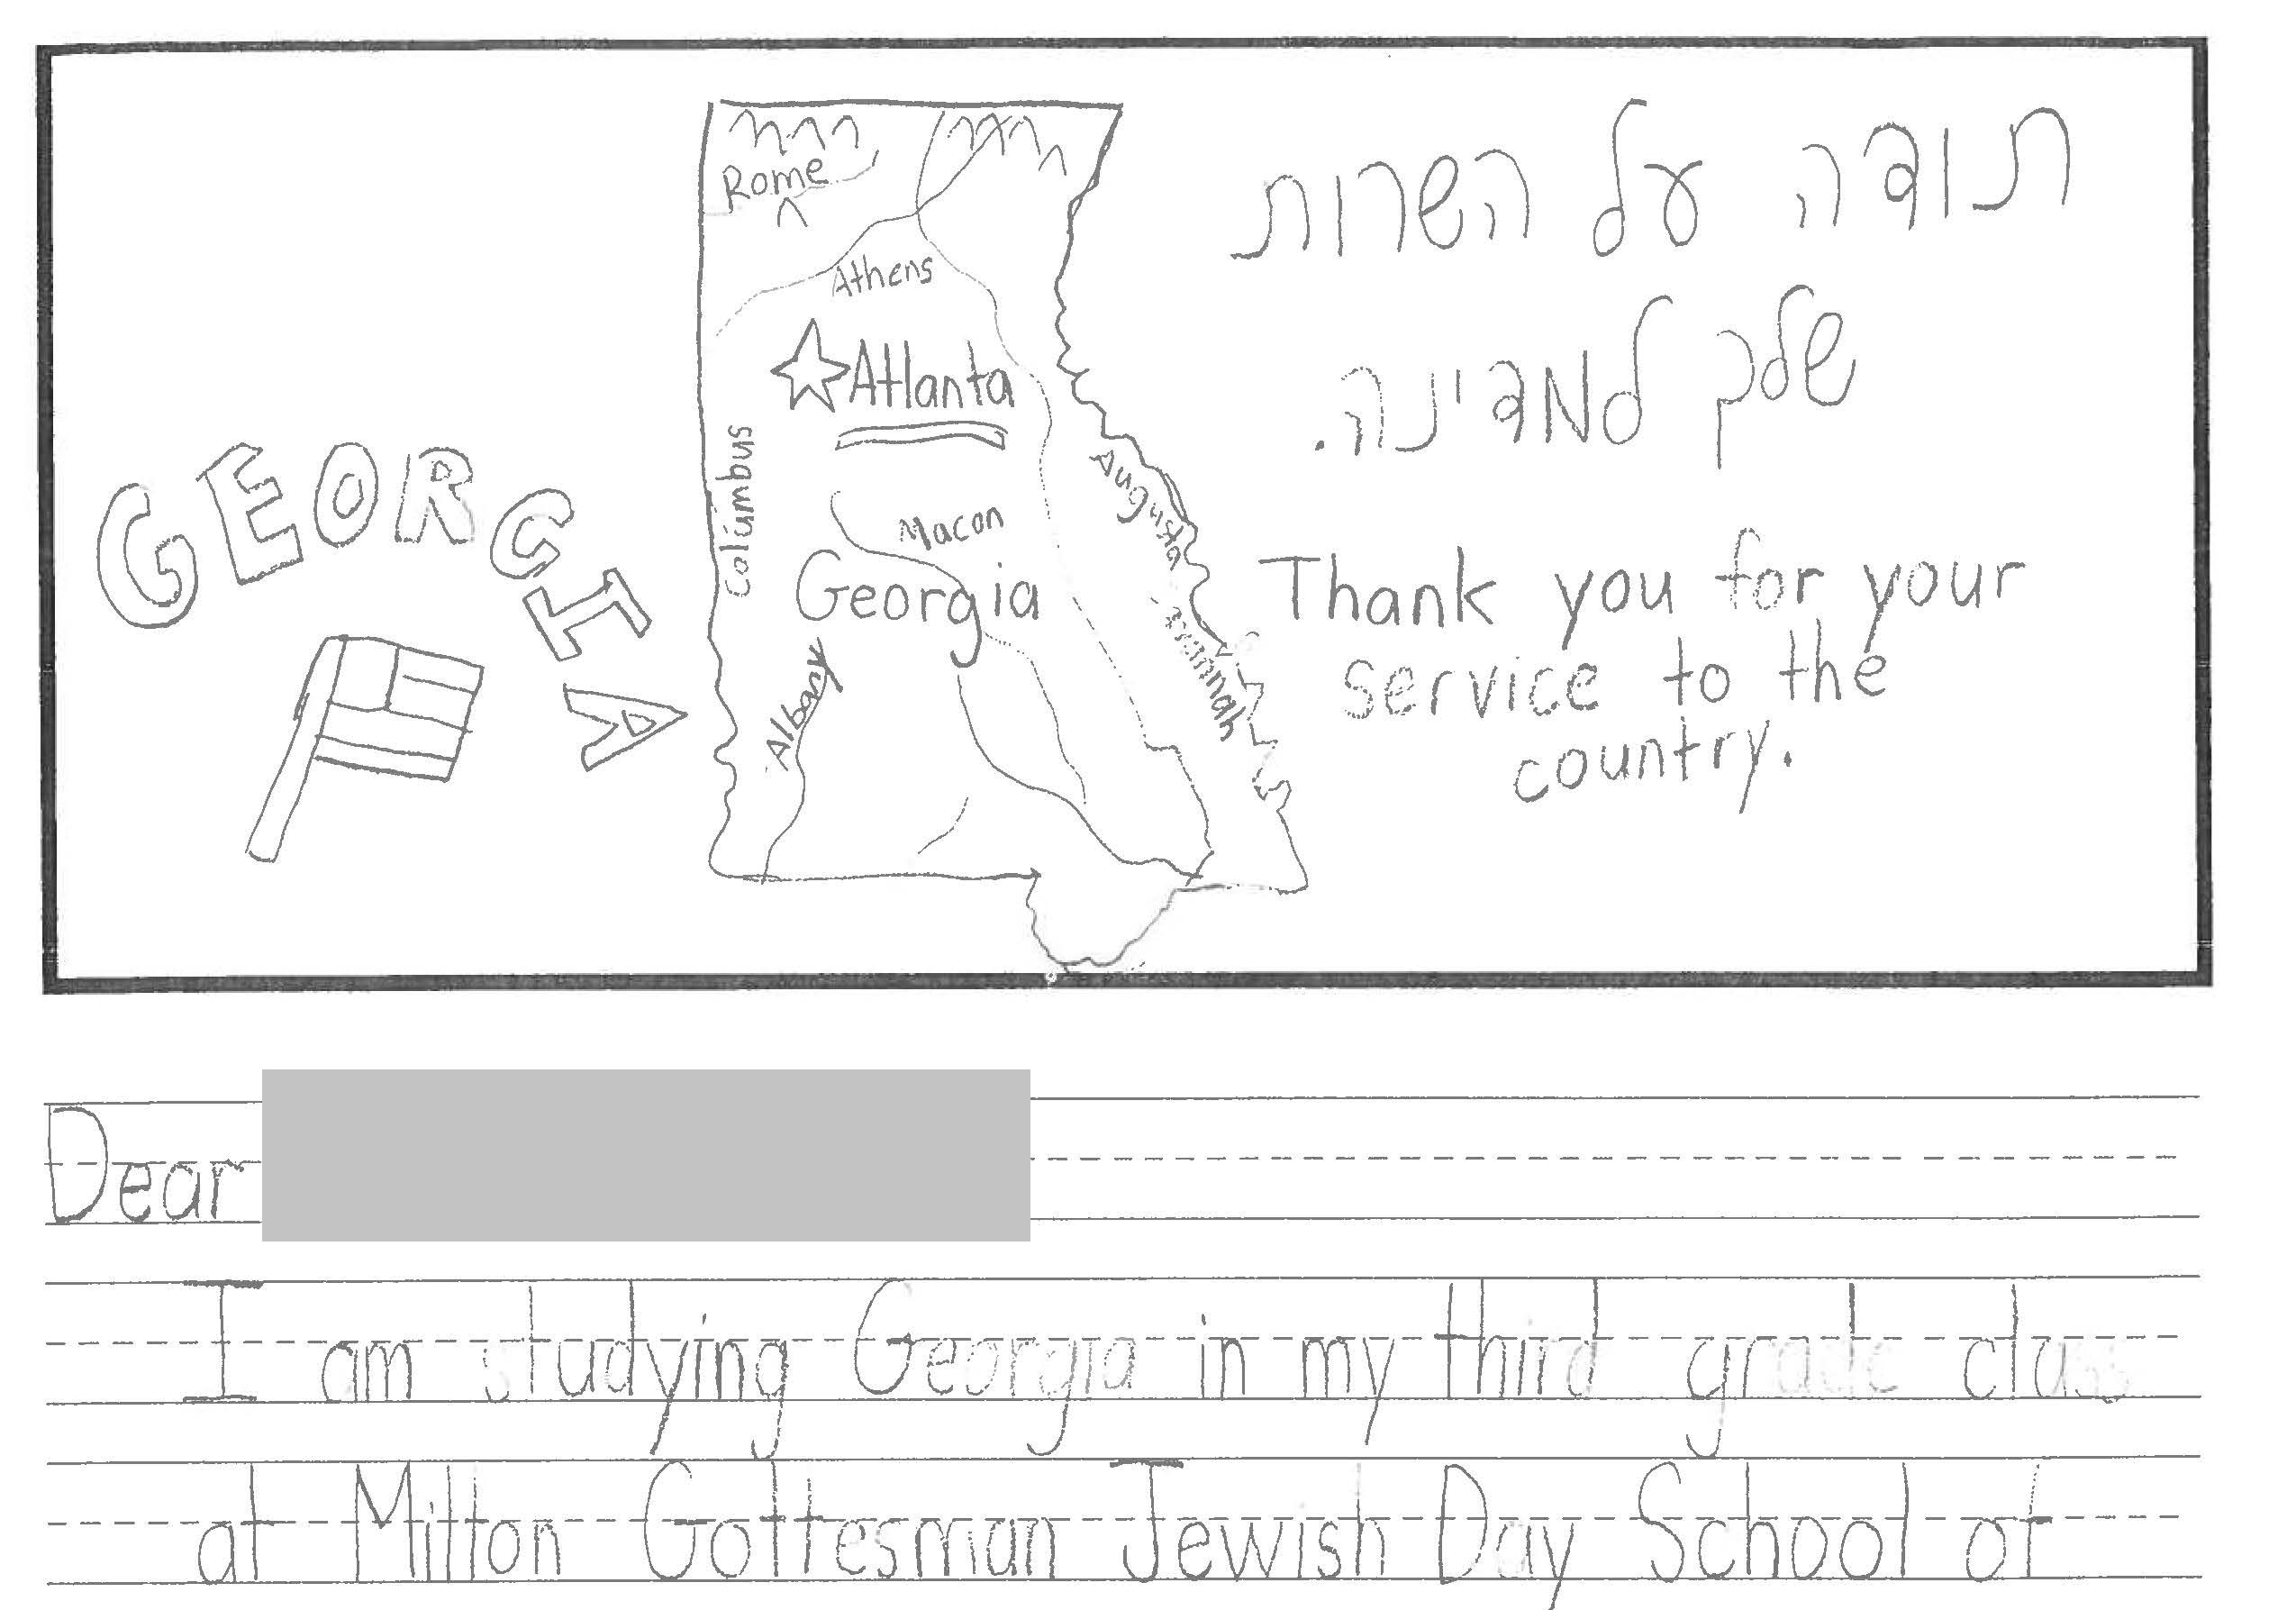 GEORGIA
Rome
Athens
Atlanta
Columbus
Macon
Augusta
Georgia
Albany
תודה על השרות
שלך למדינה.
Thank you for your
service to the
country.
Dear
I am studying Georgia in my third grade class
at Milton Gottesman Jewish Day School of